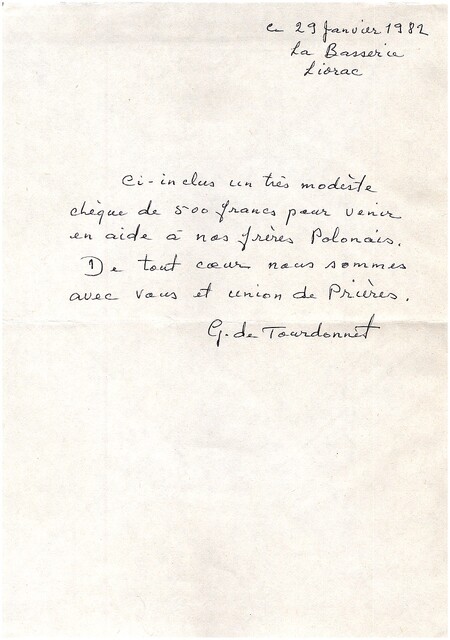 ce 29 Janvier 1982
La Basserie
Liorac
Ci-inclus un très modèste
chèque de 500 francs pour venir
en aide à nos frères Polonais.
De tout cœur nous sommes
avec vous et union de Prières.
G. de Tourdonnet